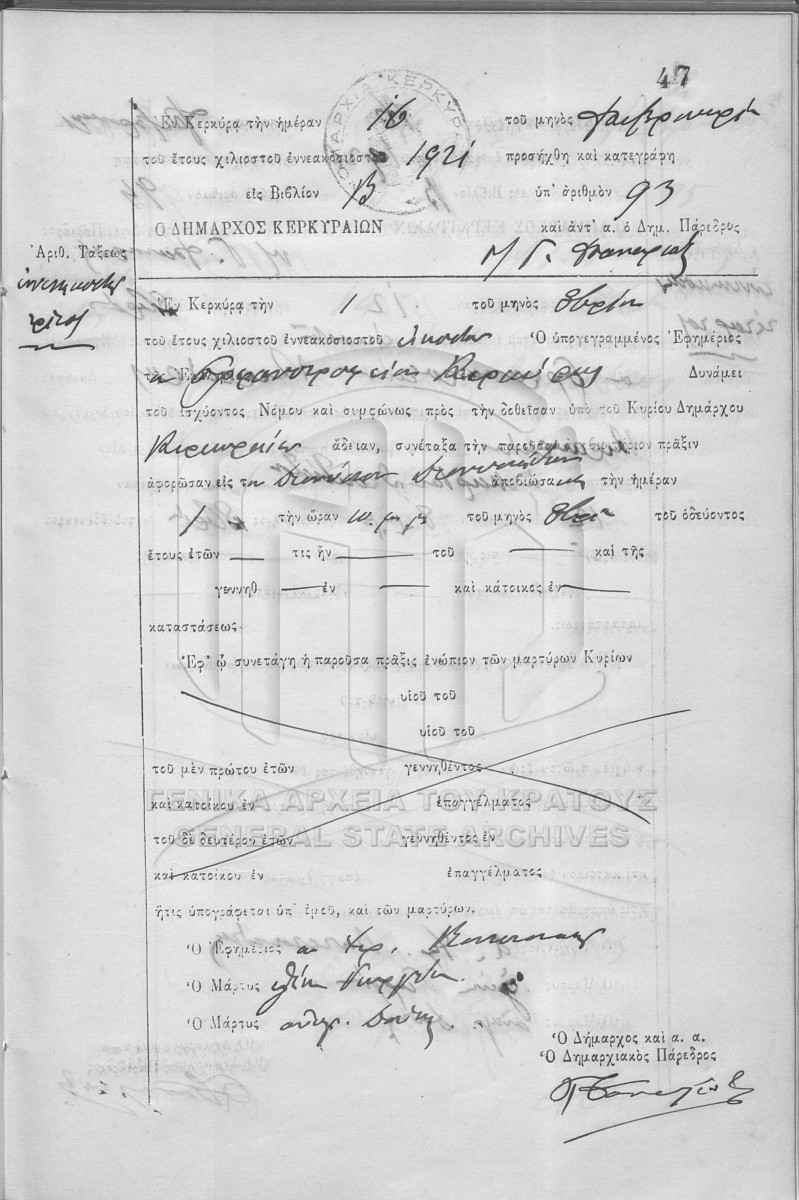 47
ΔΗΜΑΡΧΙΑ ΚΕΡΚΥΡΑ
Ἐν Κερκύρᾳ τὴν ἡμέραν 16 τοῦ μηνὸς Φεβρουαρίου
τοῦ ἔτους χιλιοστοῦ ἐννεακοσιοστοῦ 1921 προσήχθη καὶ κατεγράφη
εἰς Βιβλίον Β ὑπ᾽ ἀριθμὸν 93
Ὁ ΔΗΜΑΡΧΟΣ ΚΕΡΚΥΡΑΙΩΝ καὶ ἀντ᾽ α. ὁ Δημ. Πάρεδρος
Ἀριθ. Τάξεως
ἐνενηκοστὸς
τρίτος
Ἐν Κερκύρᾳ τὴν 1 τοῦ μηνὸς 8βρίου
τοῦ ἔτους χιλιοστοῦ ἐννεακοσιοστοῦ εἰκοστοῦ Ὁ ὑπογεγραμμένος Ἐφημέριος
Κερκύρας Δυνάμει
τοῦ ἰσχύοντος Νόμου καὶ συμφώνως πρὸς τὴν δοθεῖσαν ὑπὸ τοῦ Κυρίου Δημάρχου
Κερκυραίων ἄδειαν, συνέταξα τὴν παροῦσαν πρᾶξιν
ἀφορῶσαν εἰς τὸν ἀποβιώσα τὴν ἡμέραν
1 τὴν ὥραν 10 μ.μ. τοῦ μηνὸς 8βρίου τοῦ ὁδεύοντος
ἔτους ἐτῶν — τις ἦν — τοῦ — καὶ τῆς
γεννηθ — ἐν — καὶ κάτοικος ἐν —
καταστάσεως
Ἐφ᾽ ᾧ συνετάγη ἡ παροῦσα πρᾶξις ἐνώπιον τῶν μαρτύρων Κυρίων
υἱοῦ τοῦ
υἱοῦ τοῦ
τοῦ μὲν πρώτου ἐτῶν γεννηθέντος
καὶ κατοίκου ἐν ἐπαγγέλματος
ΓΕΝΙΚΑ ΑΡΧΕΙΑ ΤΟΥ ΚΡΑΤΟΥΣ
GENERAL STATE ARCHIVES
τοῦ δὲ δευτέρου ἐτῶν γεννηθέντος ἐν
καὶ κατοίκου ἐν ἐπαγγέλματος
ἥτις ὑπογράφεται ὑπ᾽ ἐμοῦ, καὶ τῶν μαρτύρων.
Ὁ Ἐφημέριος
Ὁ Μάρτυς
Ὁ Μάρτυς
Ὁ Δήμαρχος καὶ α. α.
Ὁ Δημαρχιακὸς Πάρεδρος